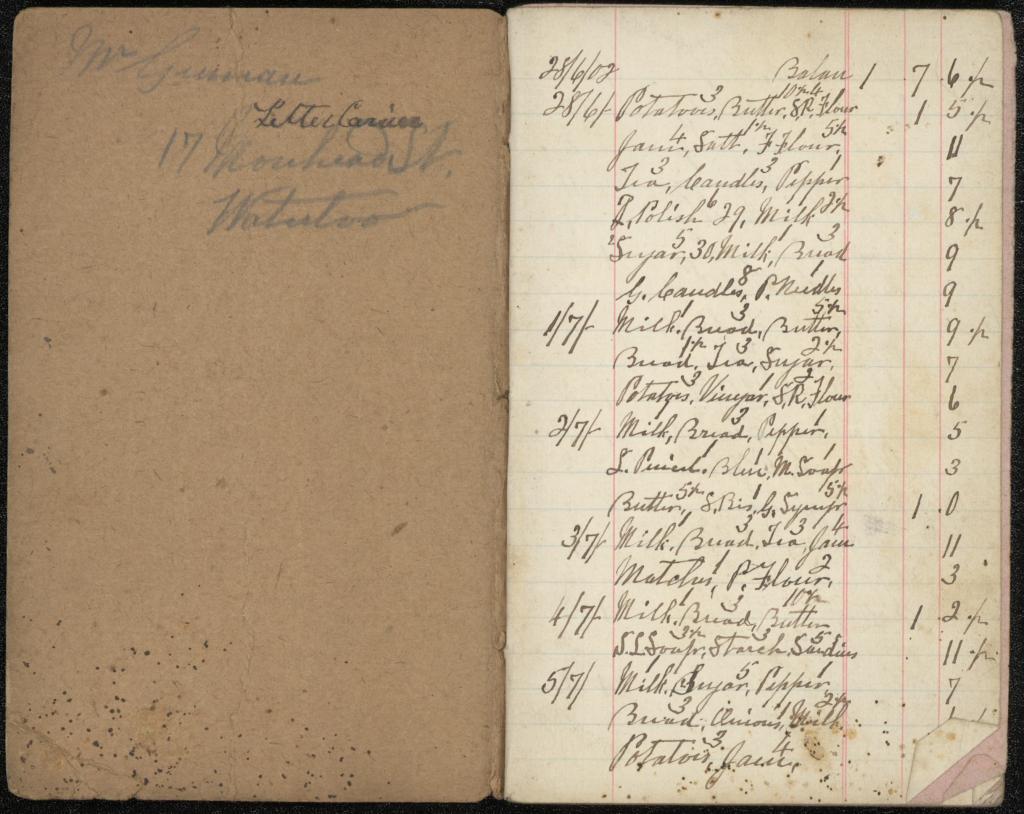 Mr Gunnan
Letter Carrier
17 Morehead St.
Waterloo
28/6/02 Balan 1 7 6 ½
28/6/ Potatoes 3, Butter 10½, S.R. Flour 4 1 5 ½
Jam 4, Salt 1½, F Flour 5½ 11
Tea 3, Candles 3, Pepper 1 7
F. Polish 6 29, Milk 2½ 8 ½
2 Sugar 5, 30, Milk 1, Bread 3 9
G. Candles 8, P. Needles 1 9
1/7/ Milk 1, Bread 3, Butter 5½ 9 ½
Bread 1½, Tea 3, Sugar 2½ 7
Potatoes 3, Vinegar 1, S.R. Flour 2 6
2/7/ Milk 1, Bread 3, Pepper 1 5
L. 1 Blue 1, M. Soap 1 3
Butter 5½, S. Bis 1, G. Syrup 5½ 1 0
3/7/ Milk 1, Bread 3, Tea 3, Jam 4 11
Matches 1, P. Flour 2 3
4/7/ Milk 1, Bread 3, Butter 10½ 1 2 ½
S.L Soap 3½, Starch 3, Sardines 5 11 ½
5/7/ Milk 1, Sugar 5, Pepper 1 7
Bread 3, Onions 1, Milk 2½
Potatoes 3, Jam 4,